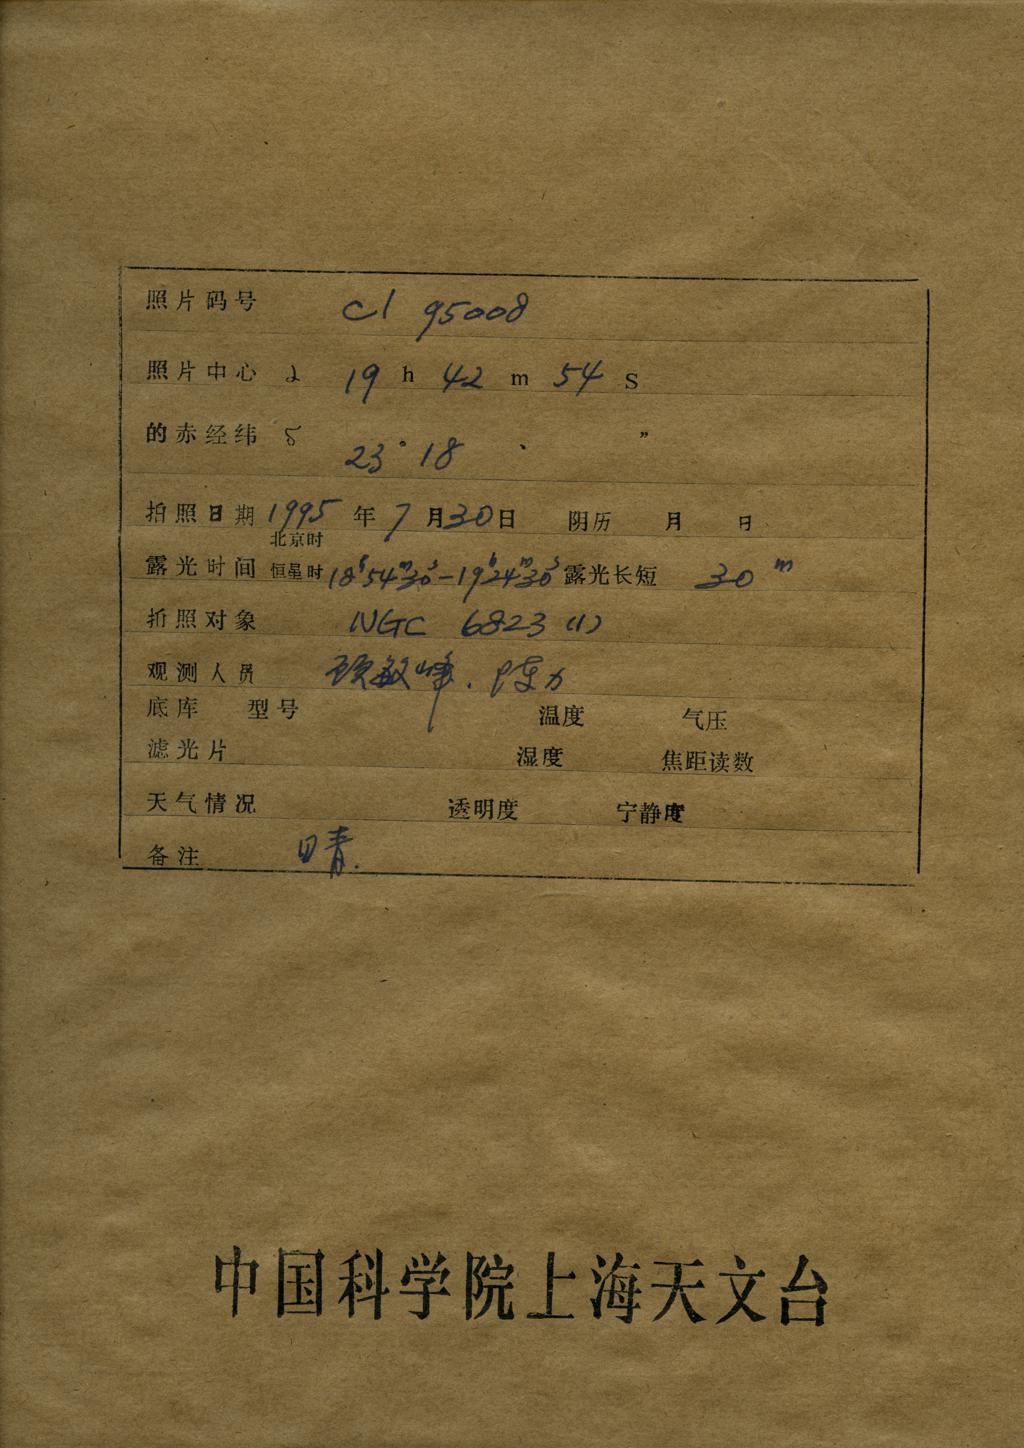 照片码号 cl 95008
照片中心 α 19 h 42 m 54 s
的赤经纬 δ 23° 18 ′ ″
拍照日期 1995 年 7 月 30 日 阴历 月 日
北京时
露光时间 恒星时 18h54m30s-19h24m30s 露光长短 30m
拍照对象 NGC 6823 (1)
观测人员 顾敏峰. 陈力
底库 型号 温度 气压
滤光片 湿度 焦距读数
天气情况 透明度 宁静度
备注 晴.
中国科学院上海天文台